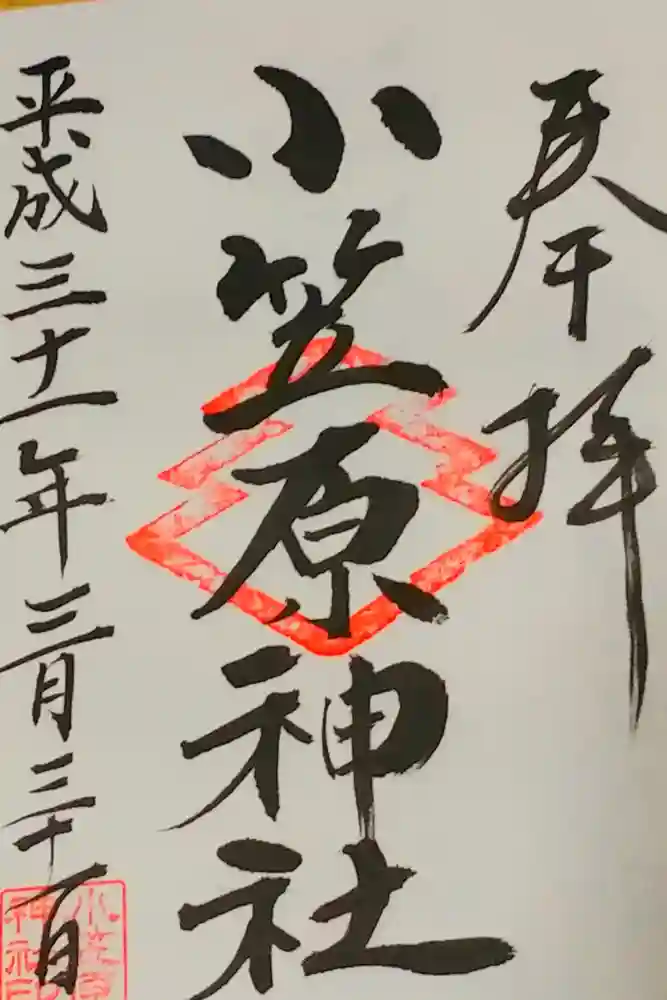 奉拝
小笠原神社
平成三十一年三月三十一日
小笠原
神社印